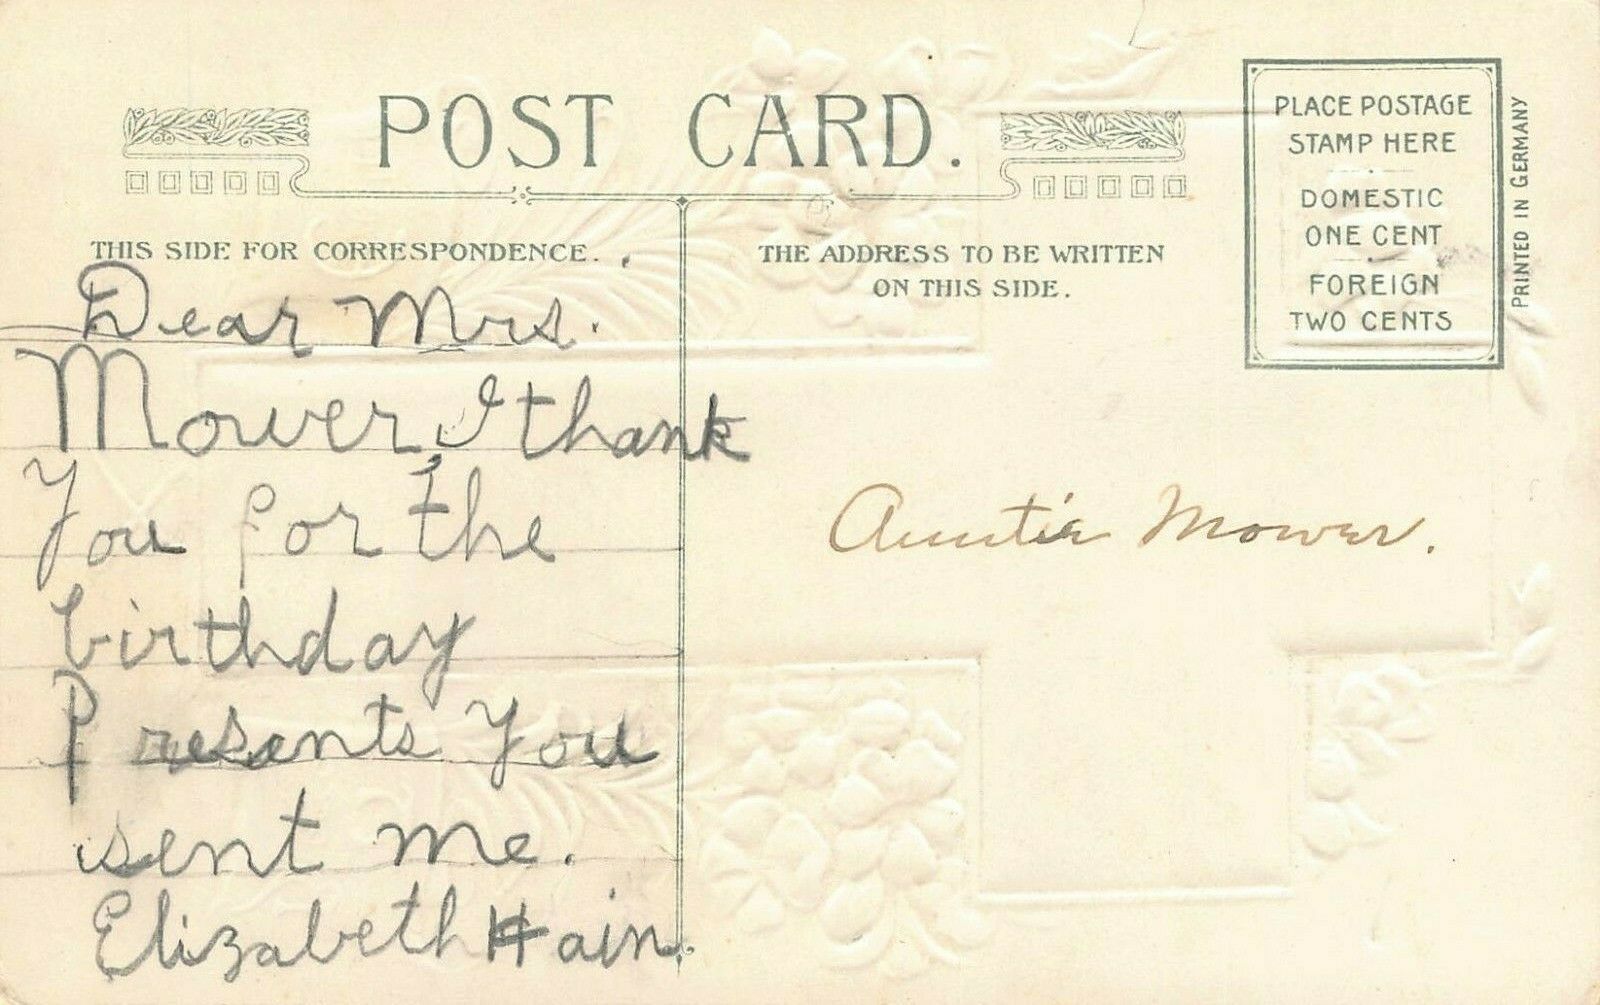 POST CARD.
THIS SIDE FOR CORRESPONDENCE.
Dear Mrs.
Mower, I thank
You for the
birthday
Presents You
sent me.
Elizabeth Hain.
THE ADDRESS TO BE WRITTEN
ON THIS SIDE.
Auntie Mower.
PLACE POSTAGE
STAMP HERE
DOMESTIC
ONE CENT
FOREIGN
TWO CENTS
PRINTED IN GERMANY